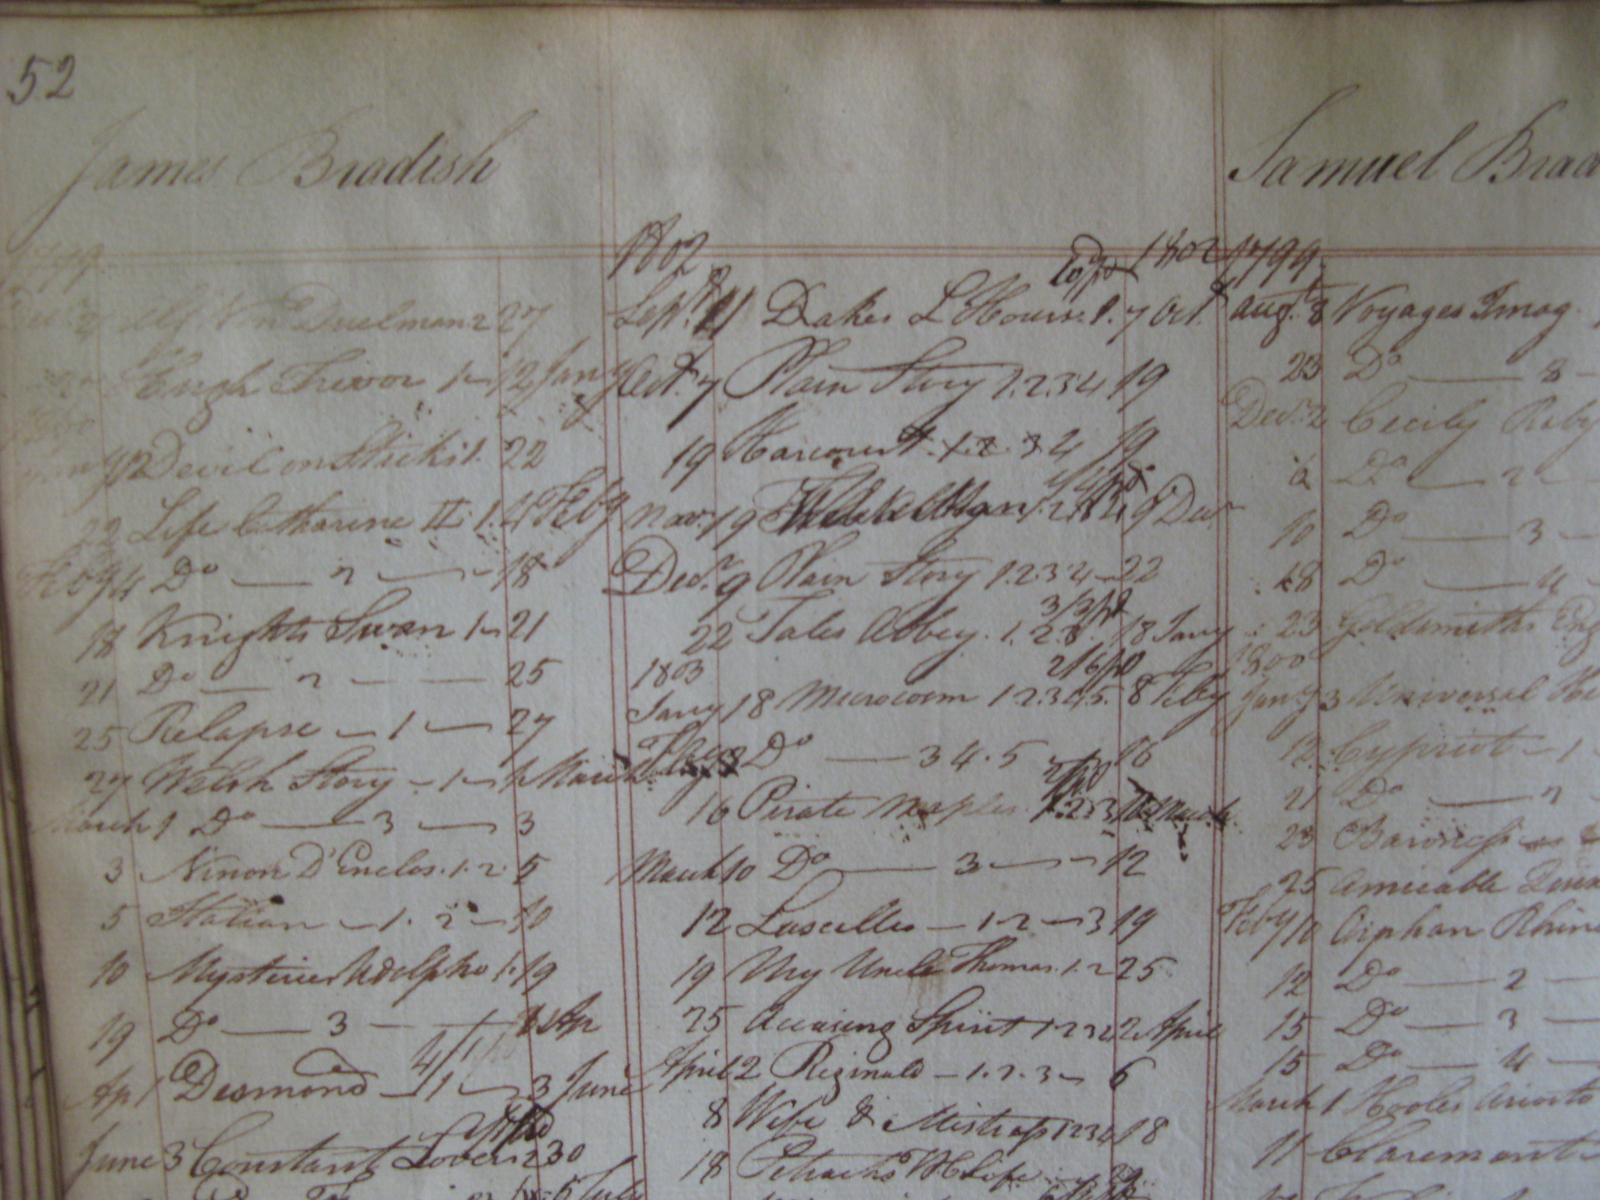 52
James Bradish
1799
Von Duelman 2 27
Hugh Trevor 1 - 12 Jany
12 Devil on Sticks 1. 22
22 Life Catharine II. 1. 4 Feby
Feby 4 Do — 2 — 18
18 Knights Swan 1 - 21
21 Do — 2 — 25
25 Relapse — 1 — 27
27 Welsh Story — 1 — 1 March
March 1 Do — 3 — 3
3 Ninon D'Enclos. 1. 2. 5
5 Italian — 1. 2 — 10
10 Mysteries Udolpho 1. 19
19 Do — 3 — Ap
4/1
Ap 1 Desmond — 1 — 3 June
June 3 Constant Lover 1 2 30
July
1802
Sept. 11 Dakes L' Hours 1. 7 Oct.
Oct. 7 Plain Story 1. 2. 3 4 19
19 Harcourt 1. 2. 3 4 19
Nov. 19 9 Decr
Decr. 9 Plain Story 1 2 3 4 - 22
3/3/pd
22 Tales Abbey. 1. 2 3. 18 Jany
1803
2/6/pd
Jany 18 Microcosm 1 2. 3 4 5. 8 Feby
Do — 3 4. 5 16
16 Pirate Naples 1. 2. 3 10 March
March 10 Do — 3 — 12
12 Lascelles — 1 - 2 — 3 19
19 My Uncle Thomas. 1. 2 25
25 Accusing Spirit 1 2 3 4 2 April
April 2 Reginald — 1. 2. 3 - 6
8 Wife & Mistress 1 2 3 4 18
18 Petrachs Life
1802
Samuel Brad
1799
Augt. 8 Voyages Imag.
23 Do — 8 -
Decr. 2 Cecily
6 Do — 2
10 Do — 3 -
18 Do — 4
23 Goldsmiths Eng
1800
Jany 3 Universal
12 Cypriot — 1
21 Do — 2
23 Baroness
25 Amicable
Feby 10 Orphan Rhine
12 Do — 2 -
15 Do — 3 -
15 Do — 4 -
March 1 Hooles Ariosto
11 Claremont